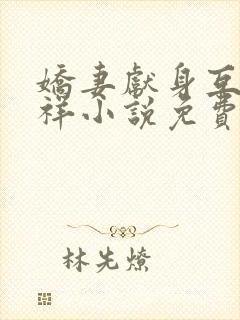 嬌妻獻身互
祥小說免費
林先燎